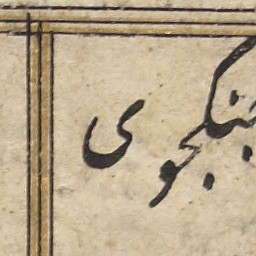 جنکجوی